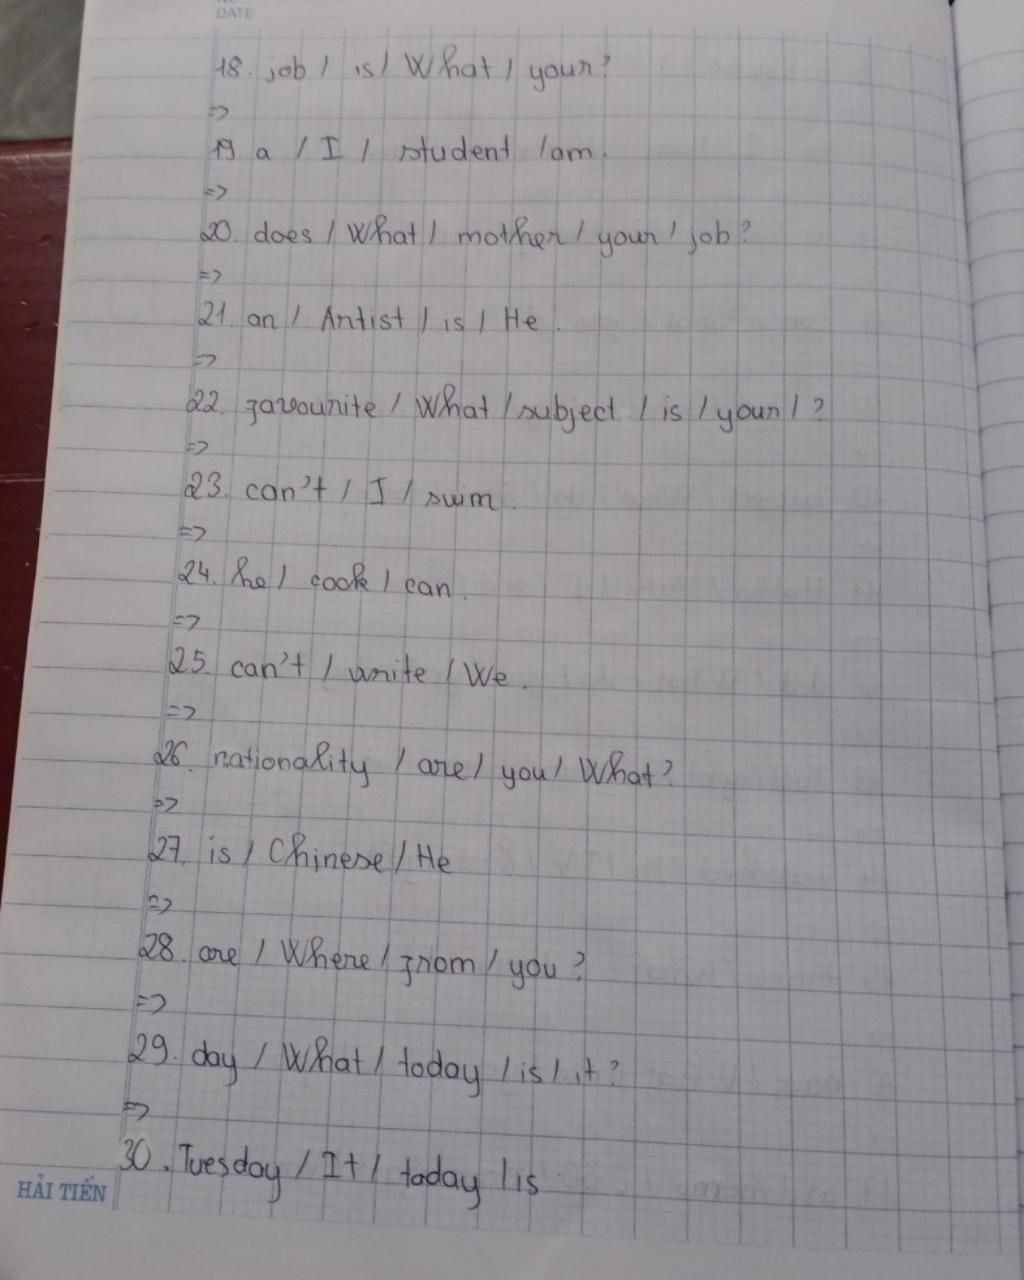 DATE
18. job / is / What / your?
=>
19 a / I / student / am.
=>
20. does / What / mother / your / job?
=>
21. an / Artist / is / He.
=>
22. favourite / What / subject / is / your / ?
=>
23. can't / I / swim.
=>
24. he / cook / can.
=>
25. can't / write / We.
=>
26. nationality / are / you / What?
=>
27. is / Chinese / He
=>
28. are / Where / from / you?
=>
29. day / What / today / is / it?
=>
30. Tuesday / It / today / is
HẢI TIẾN